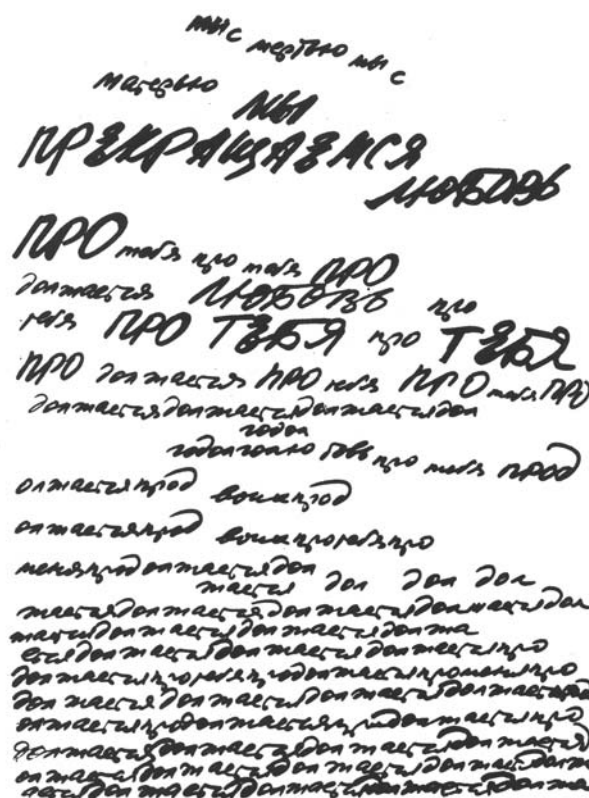 мы с мертью мы с
матерью МЫ
ПРЕКРАЩАЕМСЯ
ЛЮБОВЬ
ПРО тебя про тебя ПРО
должается ЛЮБОВЬ про
тебя ПРО ТЕБЯ про ТЕБЯ
ПРО должается ПРО тебя ПРО тебя ПРО
должаетсядолжаетсядолжаетсядол
годол
про тебя ПРОД
олжаетсяпрод войнапрод
олжаетсяпрод войнапротебяпро
меняпродолжаетсядол
жается дол дол дол
жаетсядолжаетсядолжаетсядолжаетсядол
жаетсядолжаетсядолжаетсядолжа
етсядолжаетсядолжаетсядолжаетсяпро
должаетсяпротебяпродолжаетсяпроменяпро
должаетсядолжаетсядолжаетсядолжается
олжаетсяпродолжаетсяпродолжаетсяпро
должаетсядолжаетсядолжаетсядолжается
олжаетсядолжаетсядолжаетсядолжаетсядолж
аетсядолжаетсядолжаетсядолжаетсядолжа